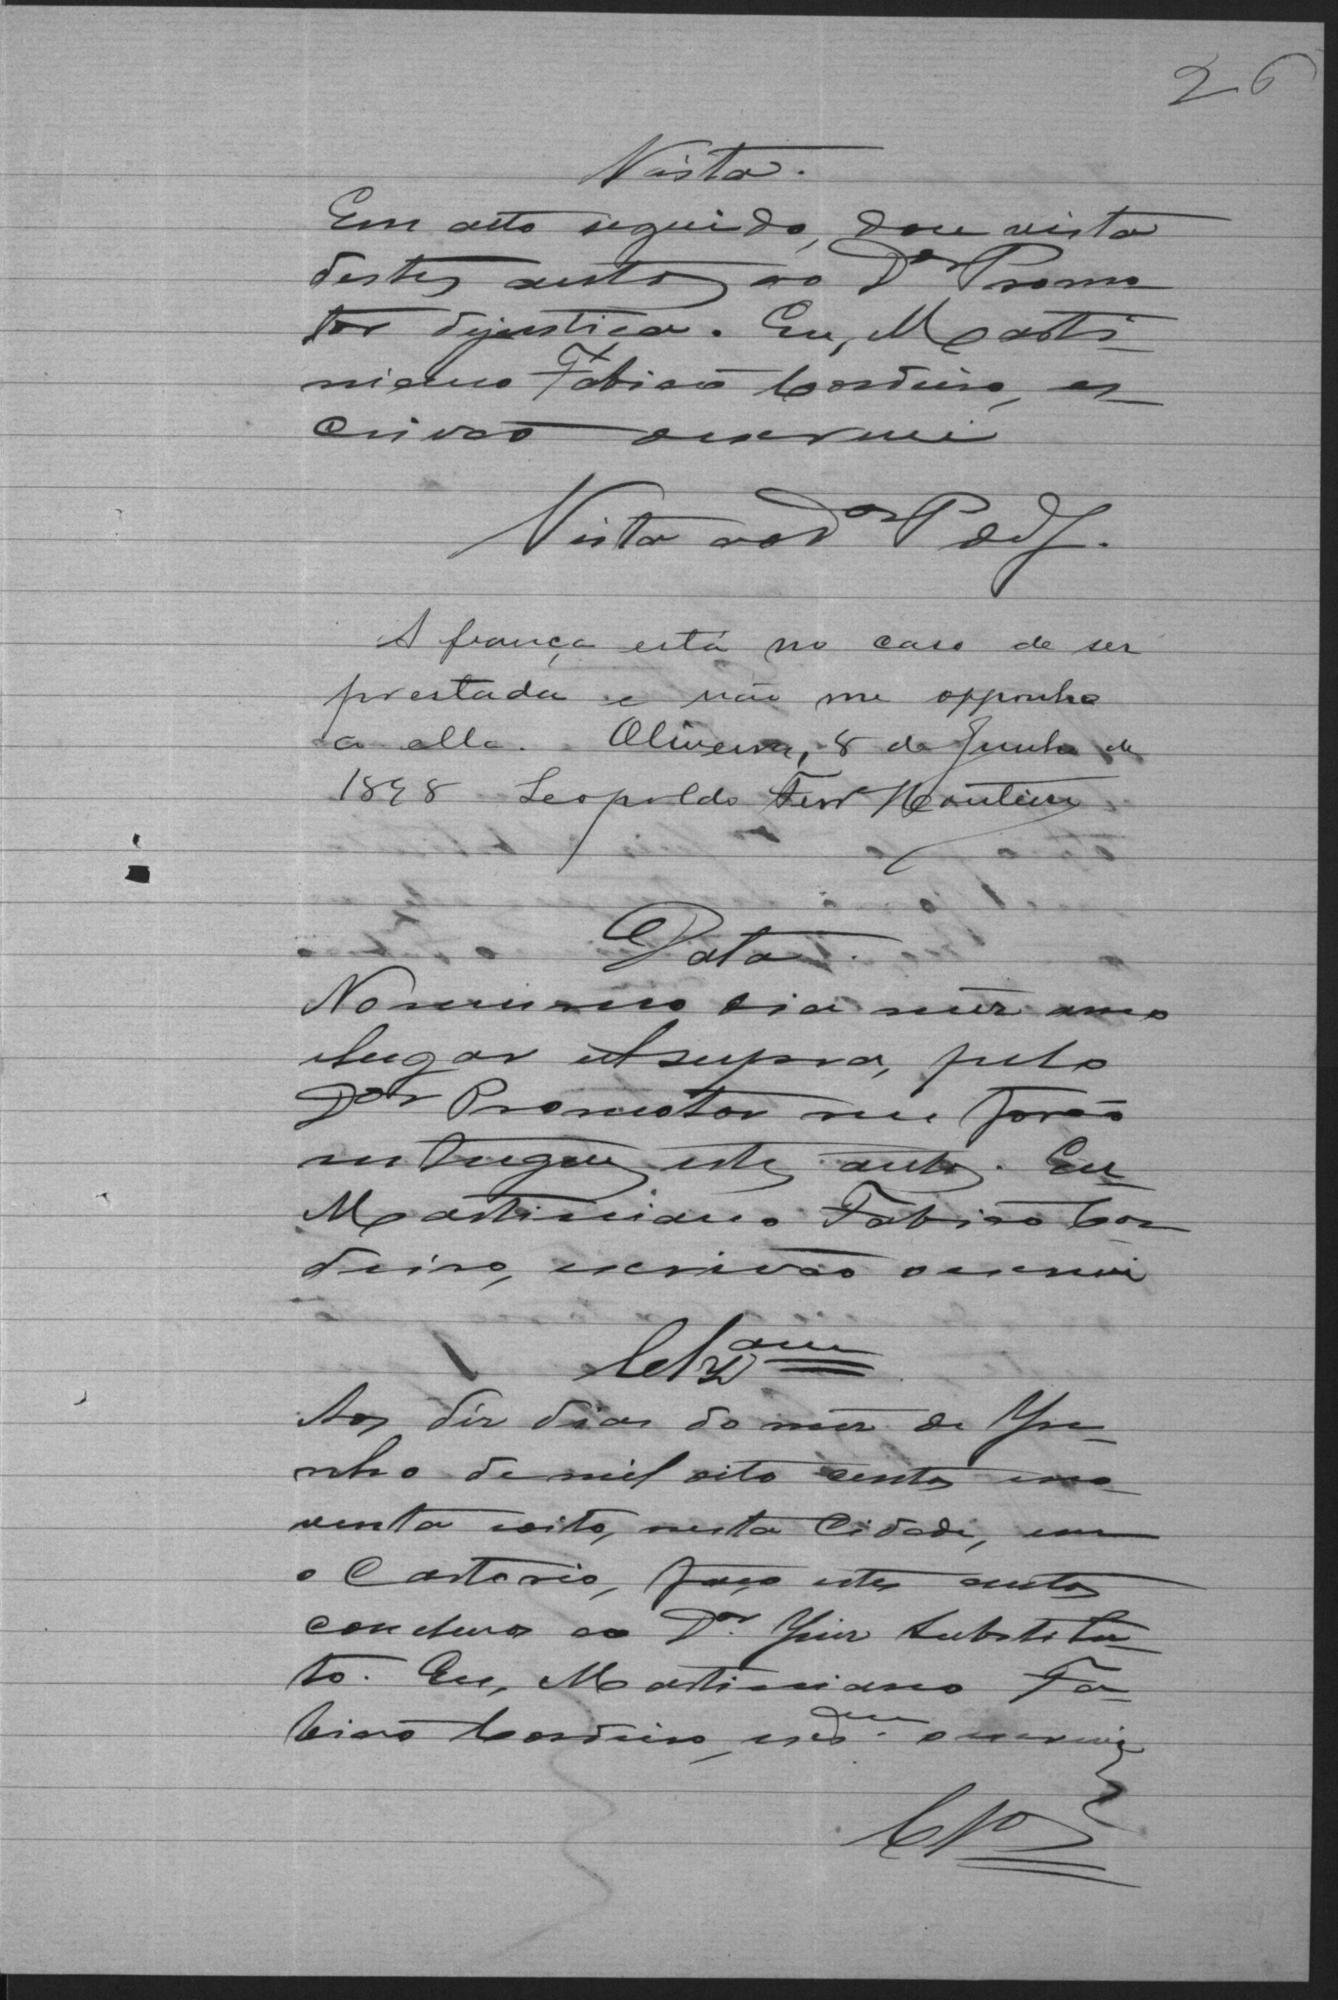 26
Vista.
Em acto seguido, dou vista
destes autos ao Dor Promo
tor dejustiça. Eu, Marti-
niano Fabião Cordeiro, es-
crivão oescrevi
Vista aoDor P deJ.
A fiança está no caso de ser
prestada e não me opponho
a ella. Oliveira, 8 de Junho de
1898 Leopoldo Ferr Monteiro
Data.
Nomesmo dia mez anno
elugar utsupra, pelo
Dor Promotor me forão
entregues estes autos. Eu
Martiniano Fabião Cor
deiro, escrivão oescrevi
Clzam
Aos dez dias do mez de Ju-
nho de mil oito centos eno-
venta eoito, nesta Cidade, em
o Cartorio, faço estes autos
concluzos ao Dr. Juiz Substitu-
to. Eu, Martiniano Fa-
bião Cordeiro, oescrevi
Clzos